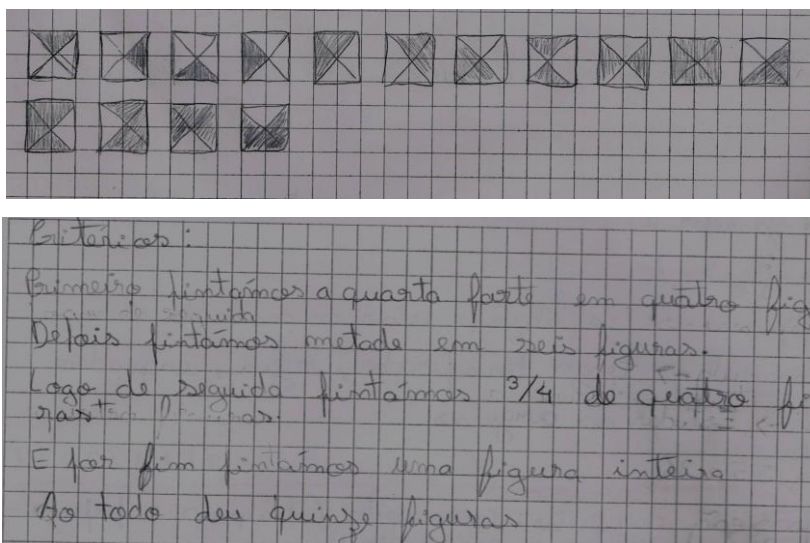 Critérios:
Primeiro pintámos a quarta parte em quatro fig
Depois pintámos metade em seis figuras.
Logo de seguida pintámos 3/4 de quatro fi
ras
E por fim pintámos uma figura inteira
Ao todo deu quinze figuras